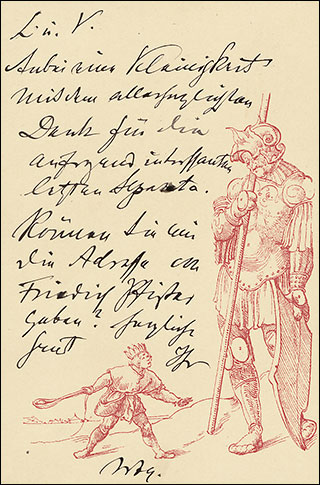 L. u. V.
Anbei eine Kleinigkeit
mit dem allerherzlichsten
Dank für die
aufregend interessanten
letzten Separata.
Können Sie mir
die Adresse von
Friedrich Pfister
geben? Herzliche
Ihr